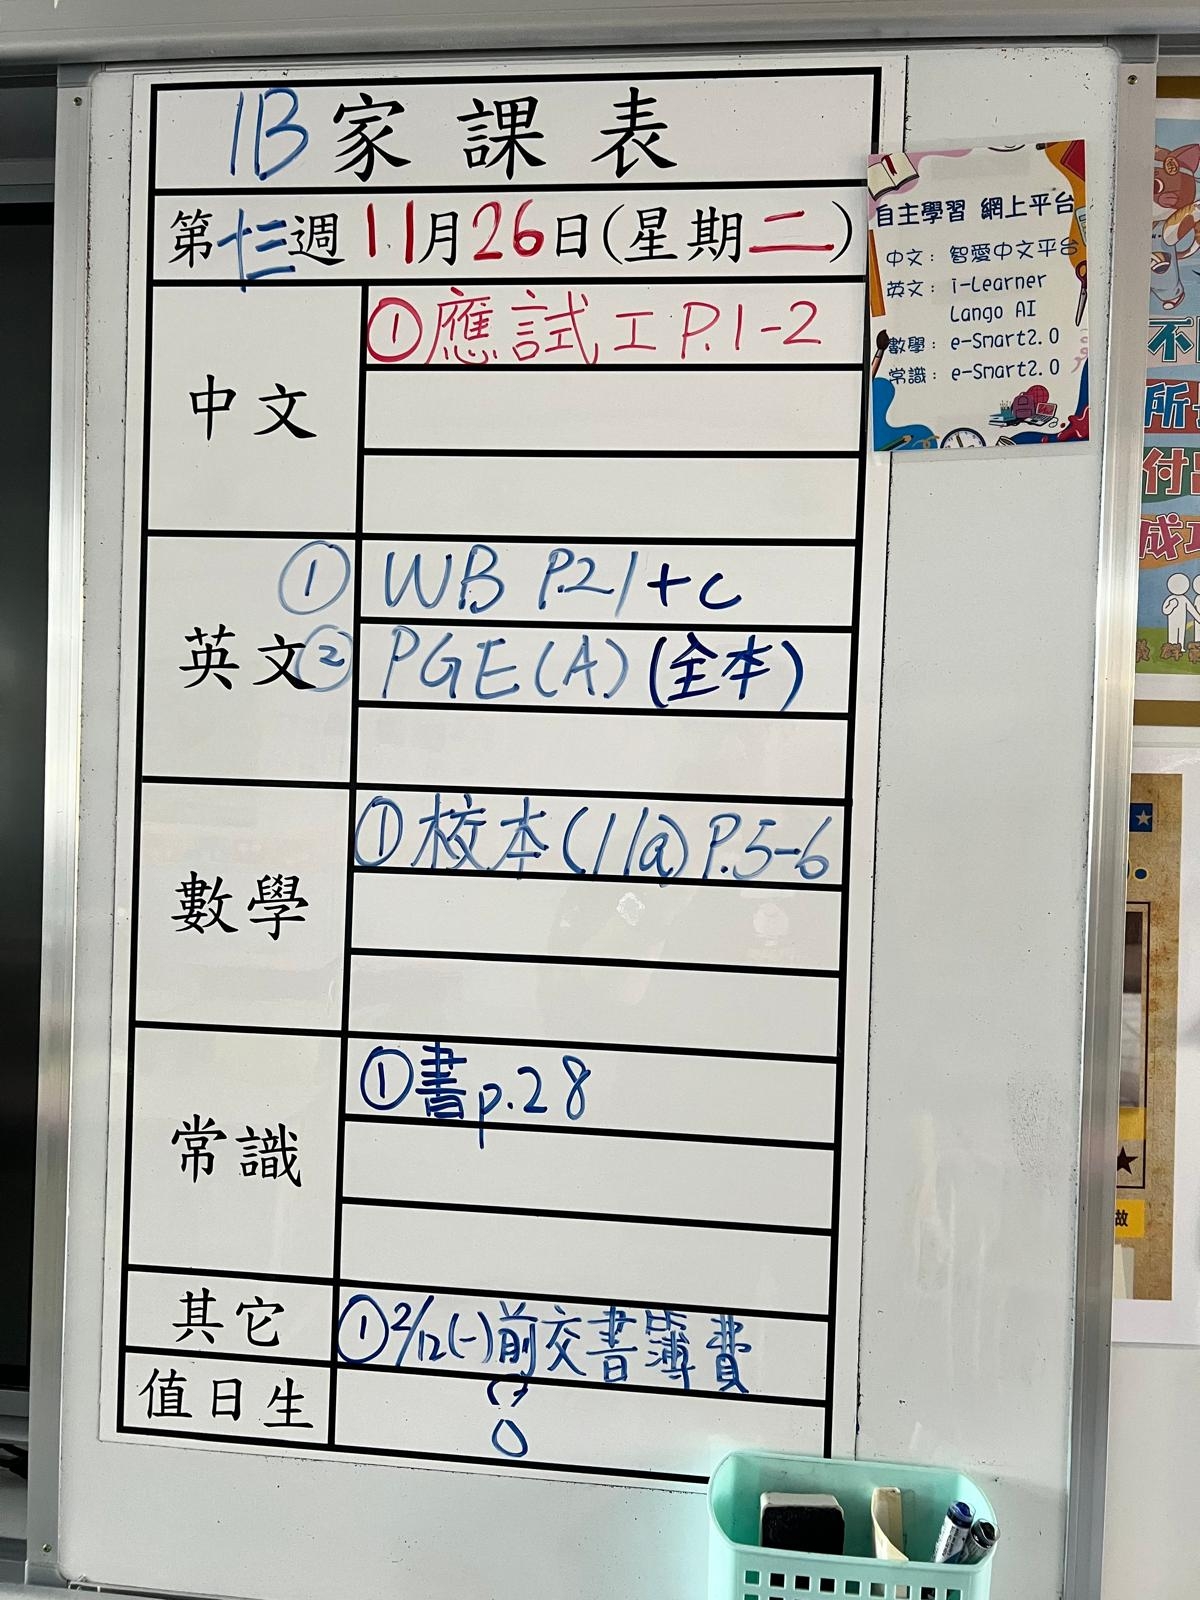 1B家課表
第十三週11月26日(星期二)
中文
①應試工P.1-2
英文
①WB P.21+c
②PGE(A)(全本)
數學
①校本(11a)P.5-6
常識
①書p.28
其它
①2/12(一)前交書簿費
值日生
自主學習 網上平台
中文：智愛中文平台
英文：i-Learner
Lango AI
數學：e-Smart2.0
常識：e-Smart2.0